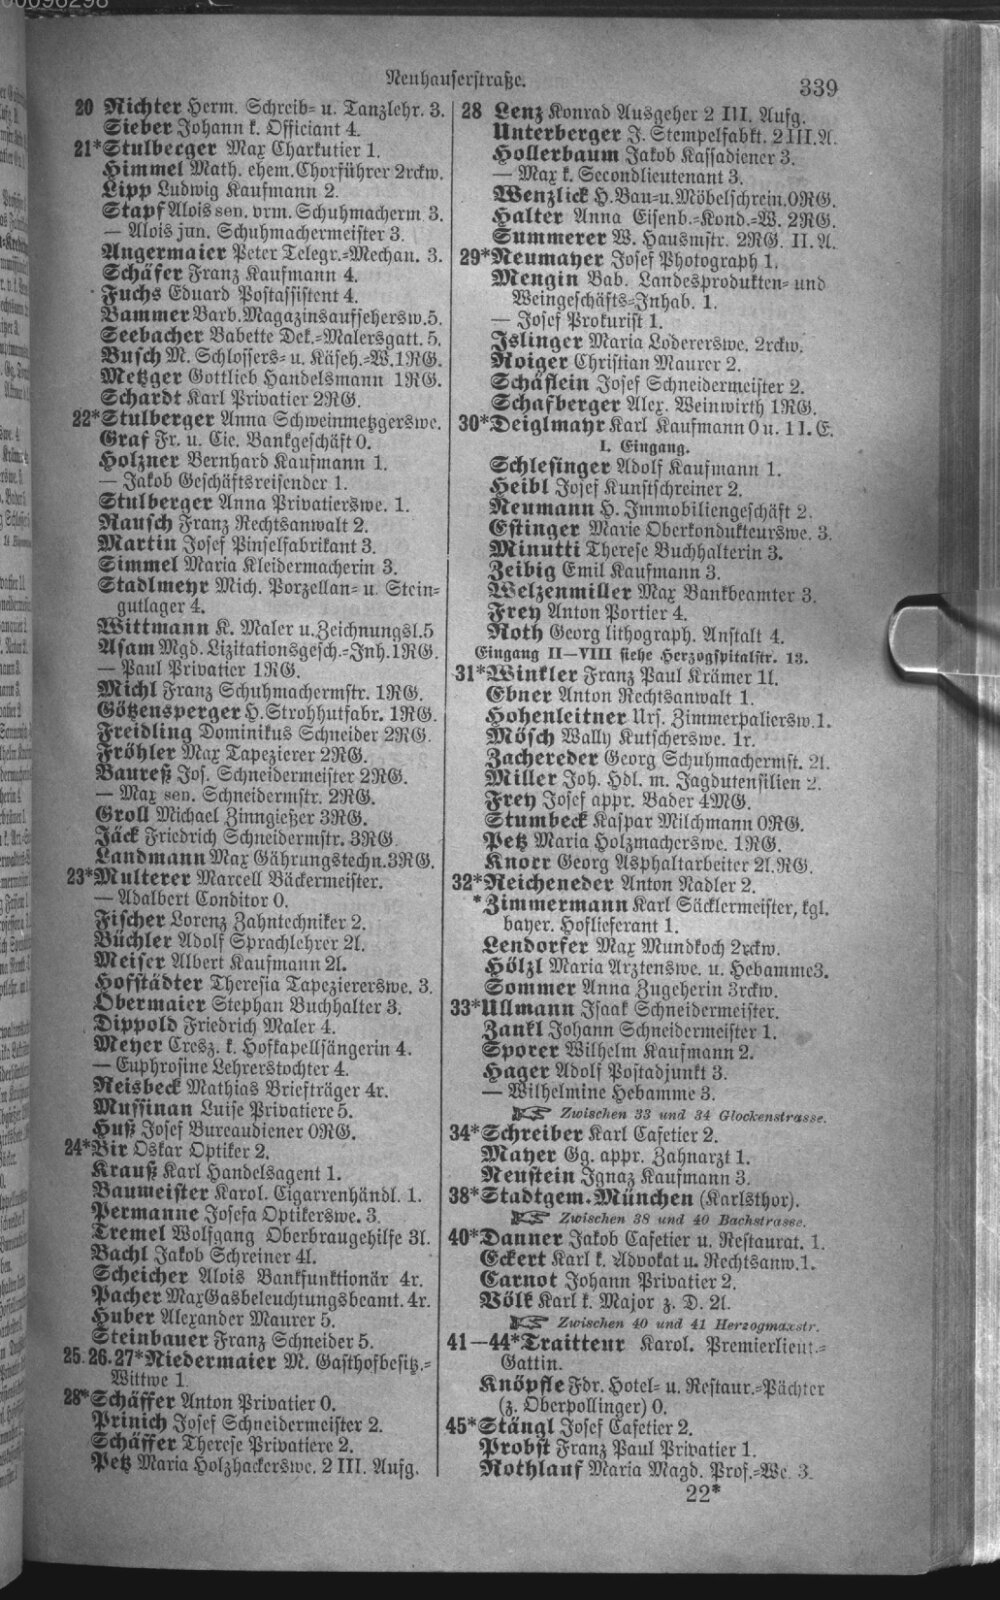 Neuhauserstraße.
339
20 Richter Herm. Schreib- u. Tanzlehr. 3.
Sieber Johann k. Officiant 4.
21*Stulberger Max Charkutier 1.
Himmel Math. ehem. Chorführer 2rckw.
Lipp Ludwig Kaufmann 2.
Stapf Alois sen. vrm. Schuhmacherm. 3.
— Alois jun. Schuhmachermeister 3.
Angermaier Peter Telegr.-Mechan. 3.
Schäfer Franz Kaufmann 4.
Fuchs Eduard Postassistent 4.
Bammer Barb. Magazinsaufsehersw. 5.
Seebacher Babette Dek.-Malersgatt. 5.
Busch M. Schlossers- u. Käseh.-W. 1RG.
Metzger Gottlieb Handelsmann 1RG.
Schardt Karl Privatier 2RG.
22*Stulberger Anna Schweinmetzgerswe.
Graf Fr. u. Cie. Bankgeschäft 0.
Holzner Bernhard Kaufmann 1.
— Jakob Geschäftsreisender 1.
Stulberger Anna Privatierswe. 1.
Rausch Franz Rechtsanwalt 2.
Martin Josef Pinselfabrikant 3.
Simmel Maria Kleidermacherin 3.
Stadlmeyr Mich. Porzellan- u. Stein-
gutlager 4.
Wittmann K. Maler u. Zeichnungsl. 5
Asam Mgd. Lizitationsgesch.-Inh. 1RG.
— Paul Privatier 1RG.
Michl Franz Schuhmachermstr. 1RG.
Götzensperger H. Strohhutfabr. 1RG.
Freidling Dominikus Schneider 2RG.
Fröhler Max Tapezierer 2RG.
Baureß Jos. Schneidermeister 2RG.
— Max sen. Schneidermstr. 2RG.
Groll Michael Zinngießer 3RG.
Jäck Friedrich Schneidermstr. 3RG.
Landmann Max Gährungstechn. 3RG.
23*Multerer Marcell Bäckermeister.
— Adalbert Conditor 0.
Fischer Lorenz Zahntechniker 2.
Büchler Adolf Sprachlehrer 2l.
Meiser Albert Kaufmann 2l.
Hofstädter Theresia Tapeziererswe. 3.
Obermaier Stephan Buchhalter 3.
Dippold Friedrich Maler 4.
Meyer Cresz. k. Hofkapellsängerin 4.
— Euphrosine Lehrerstochter 4.
Reisbeck Mathias Briefträger 4r.
Mussinan Luise Privatiere 5.
Huß Josef Bureaudiener 0RG.
24*Bir Oskar Optiker 2.
Krauß Karl Handelsagent 1.
Baumeister Karol. Cigarrenhändl. 1.
Permanne Josefa Optikerswe. 3.
Tremel Wolfgang Oberbraugehilfe 3l.
Bachl Jakob Schreiner 4l.
Scheicher Alois Bankfunktionär 4r.
Pacher Max Gasbeleuchtungsbeamt. 4r.
Huber Alexander Maurer 5.
Steinbauer Franz Schneider 5.
25.26.27*Niedermaier M. Gasthofbesitz.-
Wittwe 1.
28*Schäffer Anton Privatier 0.
Prinich Josef Schneidermeister 2.
Schäffer Therese Privatiere 2.
Petz Maria Holzhackerswe. 2 III. Aufg.
28 Lenz Konrad Ausgeher 2 III. Aufg.
Unterberger J. Stempelfabkt. 2 III. A.
Hollerbaum Jakob Kassadiener 3.
— Max k. Secondlieutenant 3.
Wenzlick H. Bau- u. Möbelschrein. 0RG.
Halter Anna Eisenb.-Kond.-W. 2RG.
Summerer W. Hausmstr. 2RG. II. A.
29*Neumayer Josef Photograph 1.
Mengin Bab. Landesprodukten- und
Weingeschäfts-Inhab. 1.
— Josef Prokurist 1.
Islinger Maria Lodererswe. 2rckw.
Roiger Christian Maurer 2.
Schäflein Josef Schneidermeister 2.
Schafberger Alex. Weinwirth 1RG.
30*Deiglmayr Karl Kaufmann 0 u. 1 I. E.
I. Eingang.
Schlesinger Adolf Kaufmann 1.
Heibl Josef Kunstschreiner 2.
Neumann H. Immobiliengeschäft 2.
Estinger Marie Oberkondukteurswe. 3.
Minutti Therese Buchhalterin 3.
Zeibig Emil Kaufmann 3.
Welzenmiller Max Bankbeamter 3.
Frey Anton Portier 4.
Roth Georg lithograph. Anstalt 4.
Eingang II—VIII siehe Herzogspitalstr. 13.
31*Winkler Franz Paul Krämer 1l.
Ebner Anton Rechtsanwalt 1.
Hohenleitner Urs. Zimmerpaliersw. 1.
Mösch Wally Kutscherswe. 1r.
Zachereder Georg Schuhmachermst. 2l.
Miller Joh. Hdl. m. Jagdutensilien 2.
Frey Josef appr. Bader 4MG.
Stumbeck Kaspar Milchmann 0RG.
Petz Maria Holzmacherswe. 1RG.
Knorr Georg Asphaltarbeiter 2l.RG.
32*Reicheneder Anton Nadler 2.
*Zimmermann Karl Säcklermeister, kgl.
bayer. Hoflieferant 1.
Lendorfer Max Mundkoch 2rckw.
Hölzl Maria Arztenswe. u. Hebamme 3.
Sommer Anna Zugeherin 3rckw.
33*Ullmann Isaak Schneidermeister.
Zankl Johann Schneidermeister 1.
Sporer Wilhelm Kaufmann 2.
Hager Adolf Postadjunkt 3.
— Wilhelmine Hebamme 3.
☞ Zwischen 33 und 34 Glockenstrasse.
34*Schreiber Karl Cafetier 2.
Mayer Gg. appr. Zahnarzt 1.
Neustein Ignaz Kaufmann 3.
38*Stadtgem. München (Karlsthor).
☞ Zwischen 38 und 40 Bachstrasse.
40*Danner Jakob Cafetier u. Restaurat. 1.
Eckert Karl k. Advokat u. Rechtsanw. 1.
Carnot Johann Privatier 2.
Völk Karl k. Major z. D. 2l.
☞ Zwischen 40 und 41 Herzogmaxstr.
41—44*Traitteur Karol. Premierlieut.-
Gattin.
Knöpfle Fdr. Hotel- u. Restaur.-Pächter
(z. Oberpollinger) 0.
45*Stängl Josef Cafetier 2.
Probst Franz Paul Privatier 1.
Rothlauf Maria Magd. Prof.-We. 3.
22*